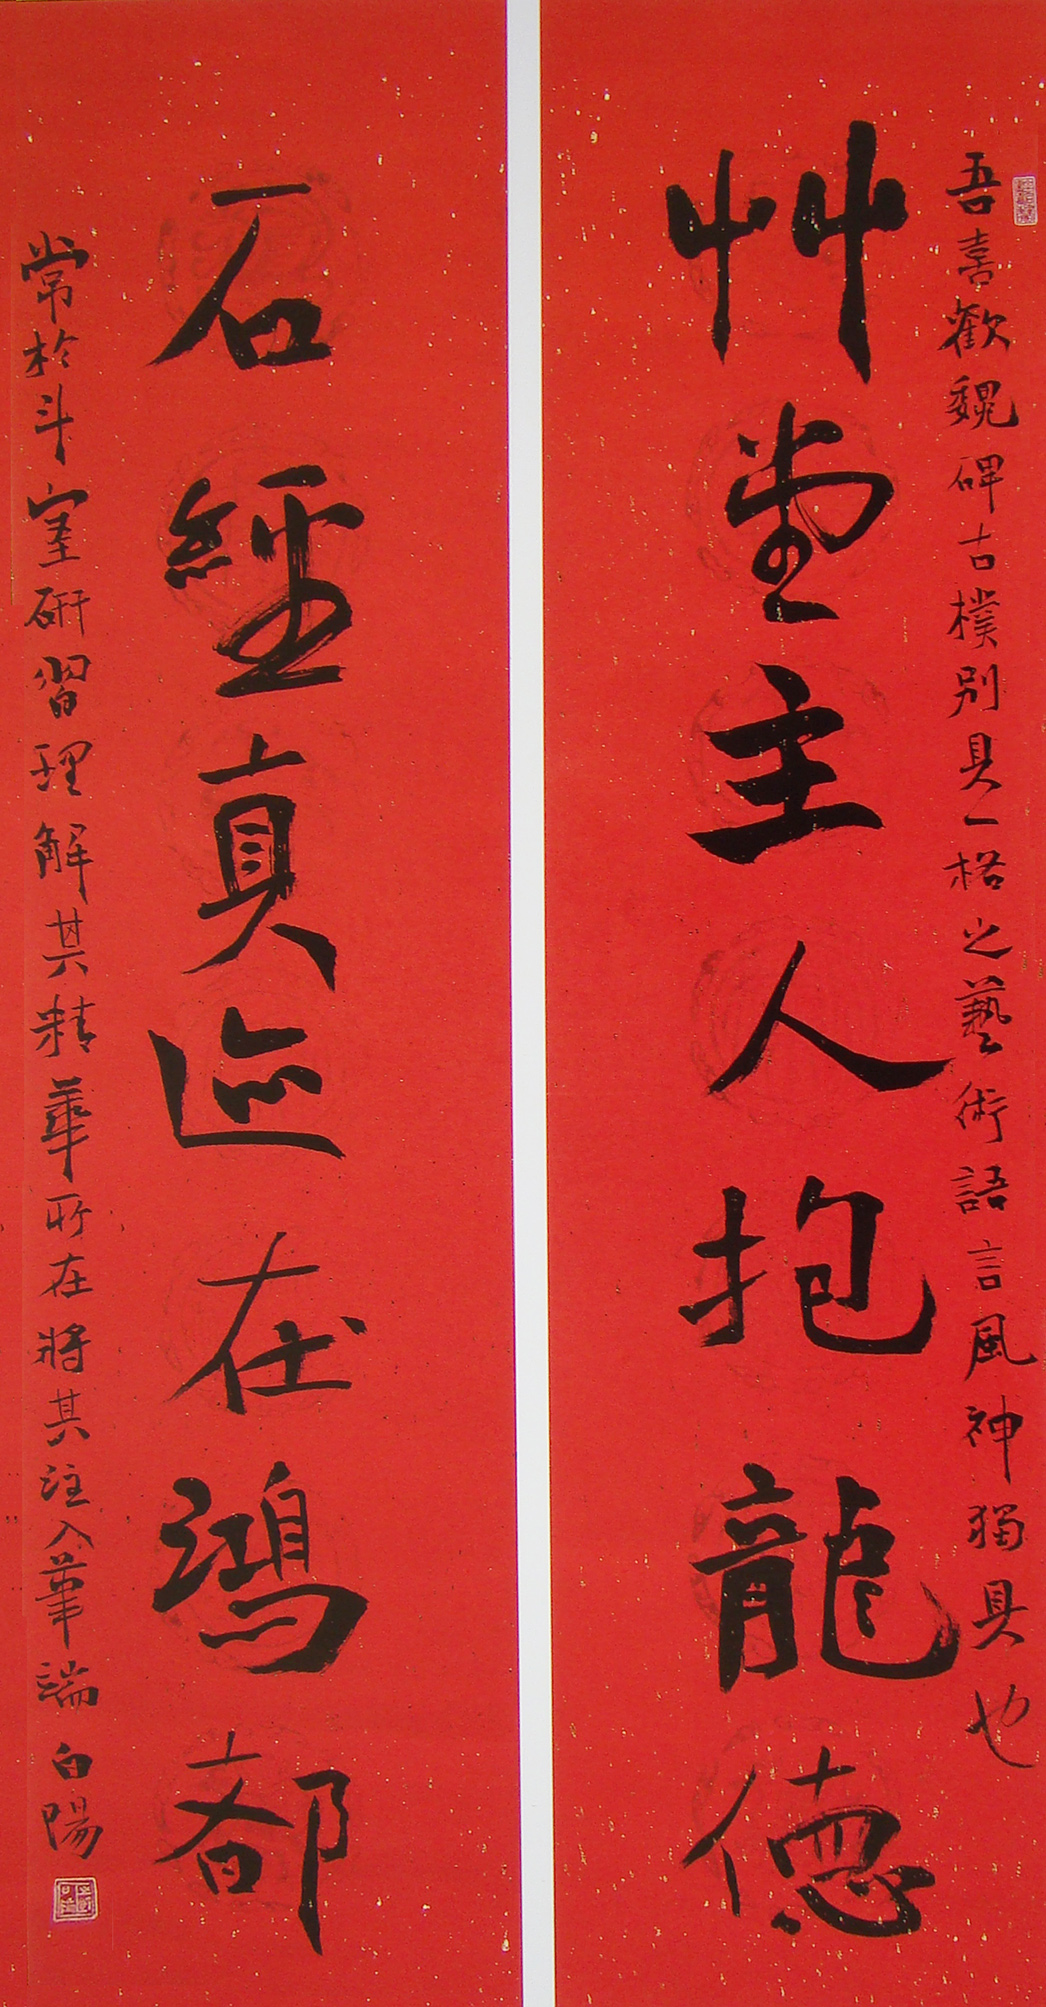 吾喜歡魏碑古樸別具一格之藝術語言風神獨具也
艸堂主人抱龍德
石經真迹在鴻都
常於斗室研習理解其精華所在將其注入筆端白陽